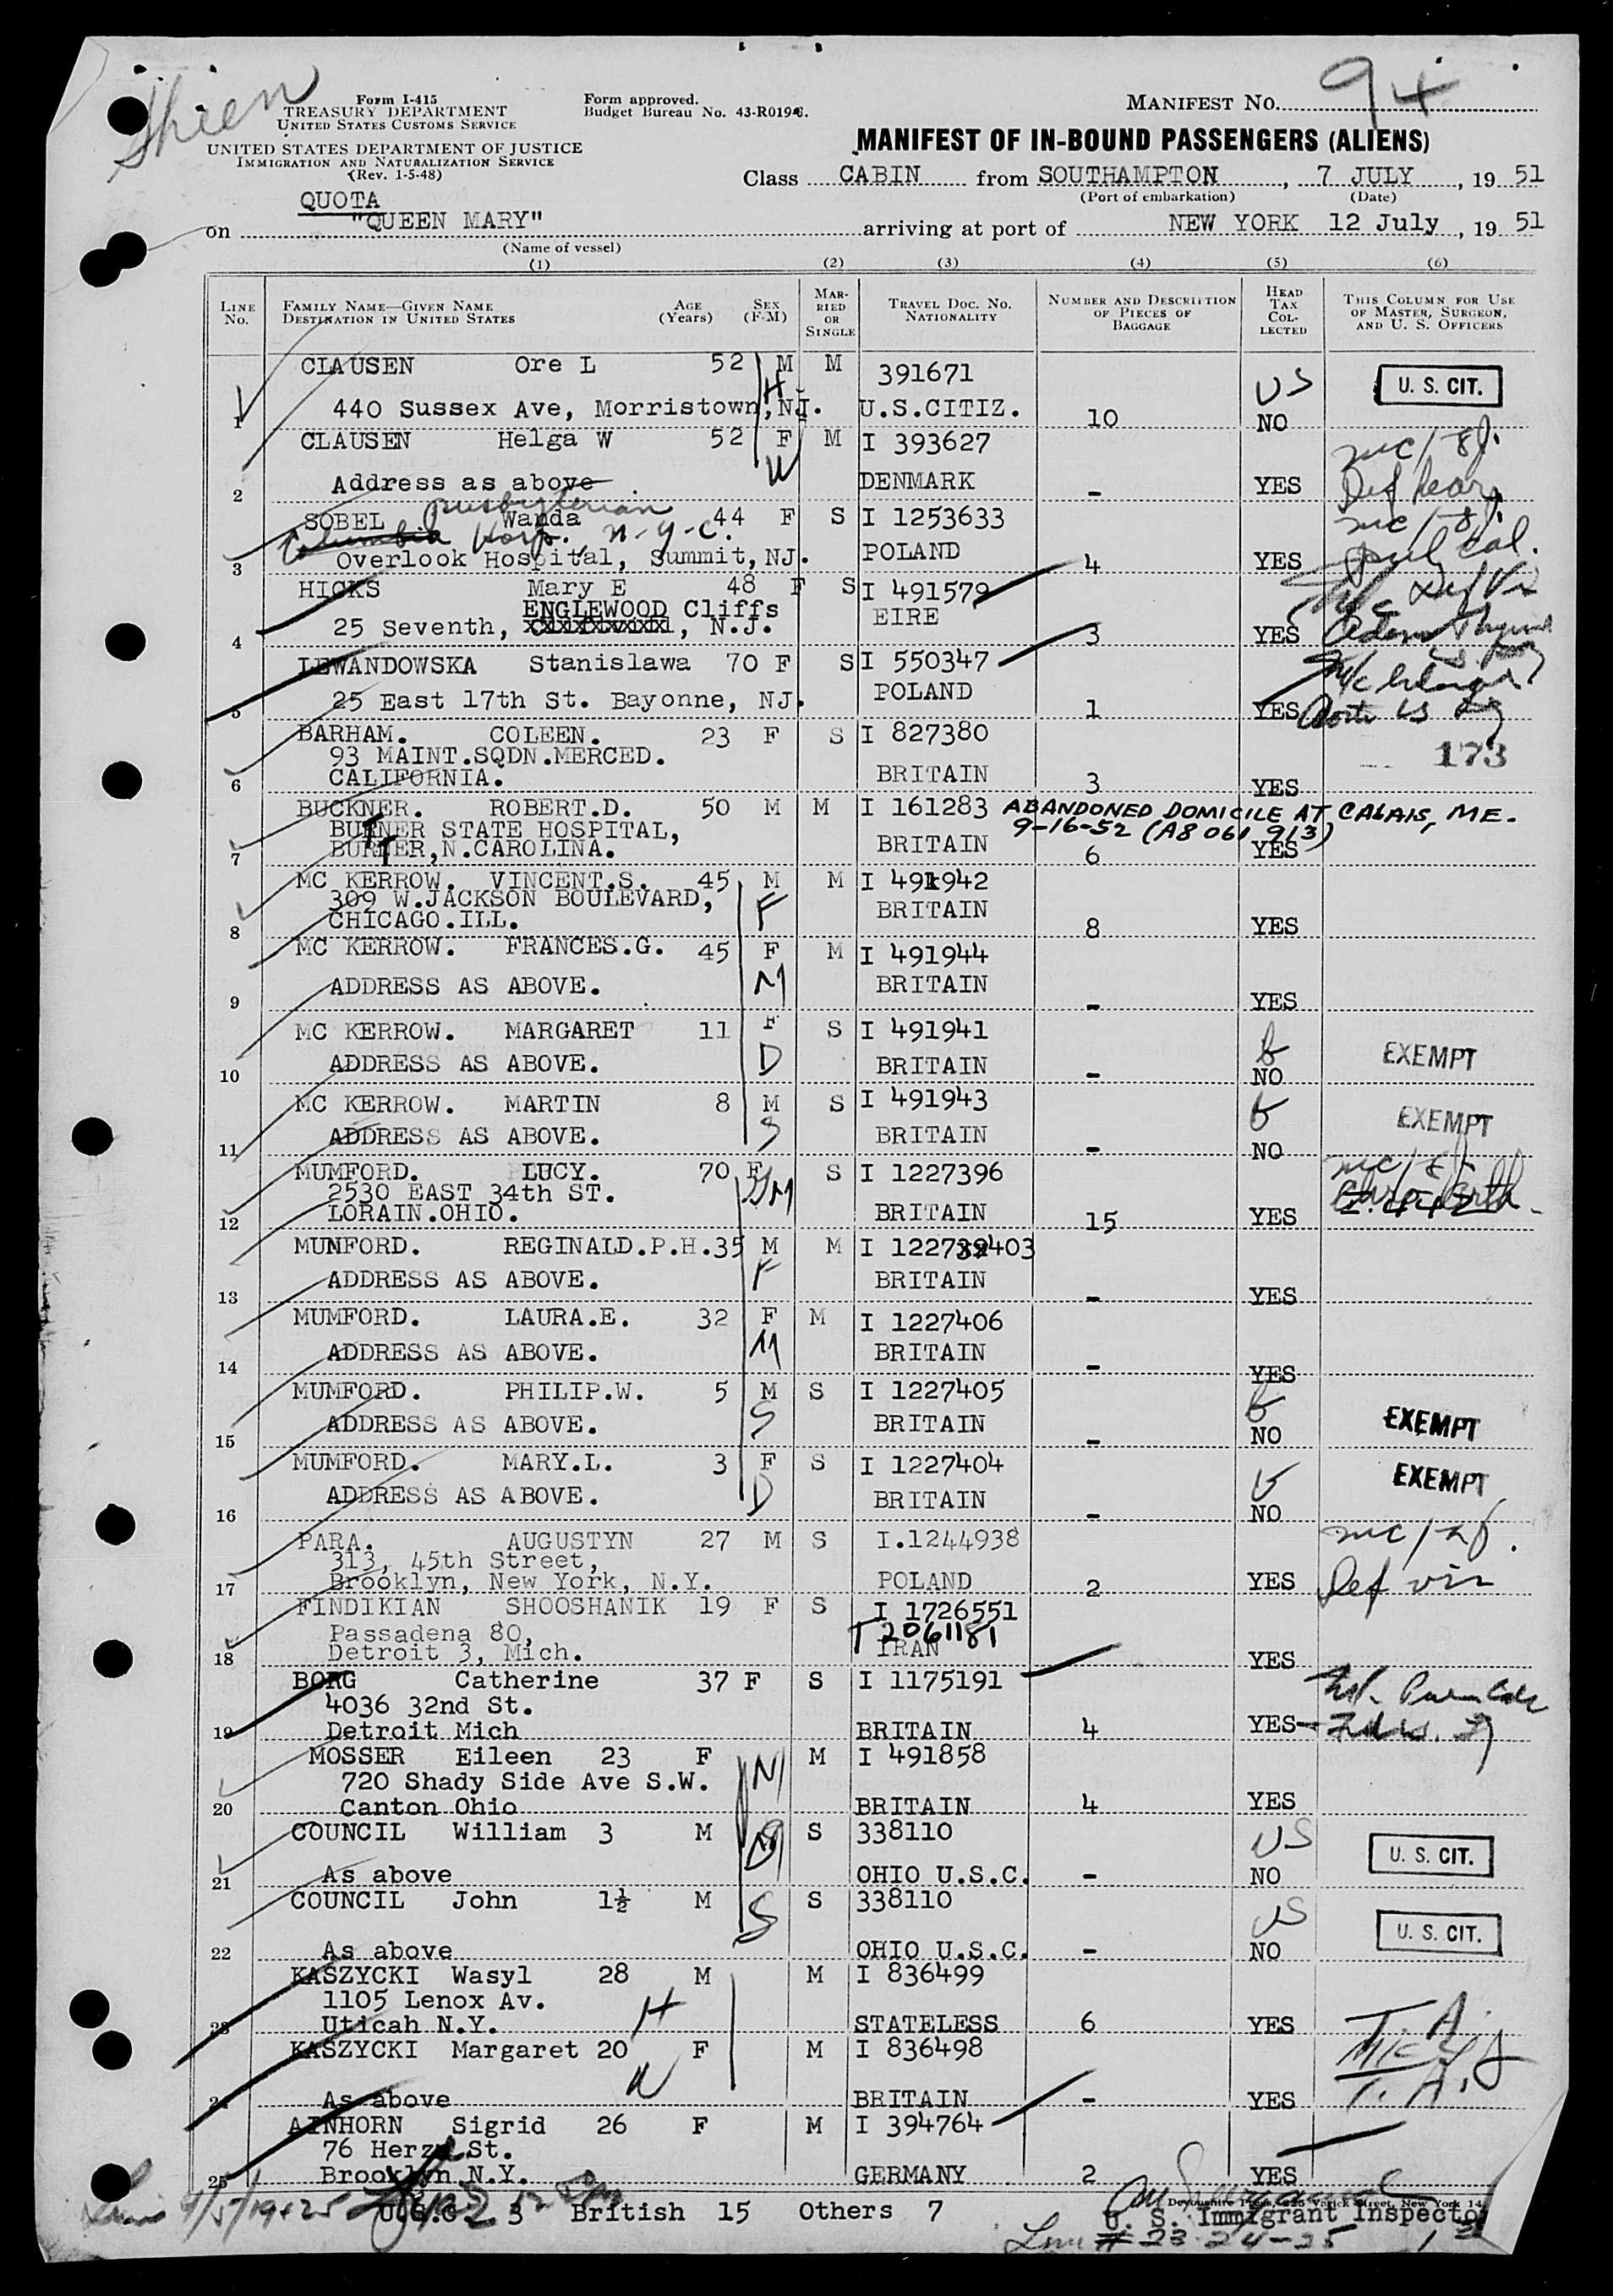 Form I-415
TREASURY DEPARTMENT
UNITED STATES CUSTOMS SERVICE
UNITED STATES DEPARTMENT OF JUSTICE
IMMIGRATION AND NATURALIZATION SERVICE
(Rev. 1-5-48)
Form approved.
Budget Bureau No. 43-R019
MANIFEST NO. 94
MANIFEST OF IN-BOUND PASSENGERS (ALIENS)
Class CABIN from SOUTHAMPTON, 7 JULY, 19 51
(Port of embarkation) (Date)
QUOTA
on "QUEEN MARY" arriving at port of NEW YORK 12 July, 19 51
(Name of vessel)
(1) (2) (3) (4) (5) (6)
LINE No. FAMILY NAME—GIVEN NAME DESTINATION IN UNITED STATES AGE (Years) SEX (F-M) MARRIED OR SINGLE TRAVEL DOC. NO. NATIONALITY NUMBER AND DESCRIPTION OF PIECES OF BAGGAGE HEAD TAX COLLECTED THIS COLUMN FOR USE OF MASTER, SURGEON, AND U. S. OFFICERS
CLAUSEN Ore L 52 M M 391671 US U. S. CIT.
H
1 440 Sussex Ave, Morristown, NJ. U.S.CITIZ. 10 NO
CLAUSEN Helga W 52 F M I 393627
W
2 Address as above. DENMARK - YES
SOBEL Wanda 44 F S I 1253633
Presbyterian
Columbia Hosp. N.Y.C.
3 Overlook Hospital, Summit, NJ. POLAND 4 YES
HICKS Mary E 48 F S I 491579
ENGLEWOOD Cliffs EIRE
4 25 Seventh, N.J. 3 YES
LEWANDOWSKA Stanislawa 70 F S I 550347
5 25 East 17th St. Bayonne, NJ. POLAND 1 YES
BARHAM. COLEEN. 23 F S I 827380 173
93 MAINT.SQDN.MERCED.
6 CALIFORNIA. BRITAIN 3 YES
BUCKNER. ROBERT.D. 50 M M I 161283 ABANDONED DOMICILE AT CALAIS, ME.
9-16-52 (A8 061 913)
BURNER STATE HOSPITAL,
7 BURNER, N.CAROLINA. BRITAIN 6 YES
MC KERROW. VINCENT.S. 45 M M I 491942
309 W.JACKSON BOULEVARD, F BRITAIN
8 CHICAGO.ILL. 8 YES
MC KERROW. FRANCES.G. 45 F M I 491944
9 ADDRESS AS ABOVE. M BRITAIN - YES
MC KERROW. MARGARET 11 F S I 491941 EXEMPT
10 ADDRESS AS ABOVE. D BRITAIN - NO
MC KERROW. MARTIN 8 M S I 491943 EXEMPT
11 ADDRESS AS ABOVE. S BRITAIN - NO
MUMFORD. LUCY. 70 F S I 1227396
2530 EAST 34th ST. GM
12 LORAIN.OHIO. BRITAIN 15 YES
MUNFORD. REGINALD.P.H. 35 M M I 1227403
13 ADDRESS AS ABOVE. F BRITAIN - YES
MUMFORD. LAURA.E. 32 F M I 1227406
14 ADDRESS AS ABOVE. M BRITAIN - YES
MUMFORD. PHILIP.W. 5 M S I 1227405 EXEMPT
15 ADDRESS AS ABOVE. S BRITAIN - NO
MUMFORD. MARY.L. 3 F S I 1227404 EXEMPT
16 ADDRESS AS ABOVE. D BRITAIN - NO
PARA. AUGUSTYN 27 M S I.1244938
313, 45th Street,
17 Brooklyn, New York, N.Y. POLAND 2 YES
FINDIKIAN SHOOSHANIK 19 F S I 1726551
Passadena 80, T 2061181
18 Detroit 3, Mich. IRAN YES
BORG Catherine 37 F S I 1175191
4036 32nd St.
19 Detroit Mich BRITAIN 4 YES
MOSSER Eileen 23 F M I 491858
720 Shady Side Ave S.W. M
20 Canton Ohio BRITAIN 4 YES
COUNCIL William 3 M S 338110 US U. S. CIT.
21 As above OHIO U.S.C. - NO
COUNCIL John 1½ M S 338110 US U. S. CIT.
S
22 As above OHIO U.S.C. - NO
KASZYCKI Wasyl 28 M M I 836499
1105 Lenox Av. H
23 Uticah N.Y. STATELESS 6 YES T. A.
KASZYCKI Margaret 20 F M I 836498
W
24 As above BRITAIN - YES T. A.
AINHORN Sigrid 26 F M I 394764
76 Herzl St.
25 Brooklyn N.Y. GERMANY 2 YES
Devonshire Press, 225 Varick Street, New York 14
U.S.C 3 British 15 Others 7 U. S. Immigrant Inspector
# 23 24-25